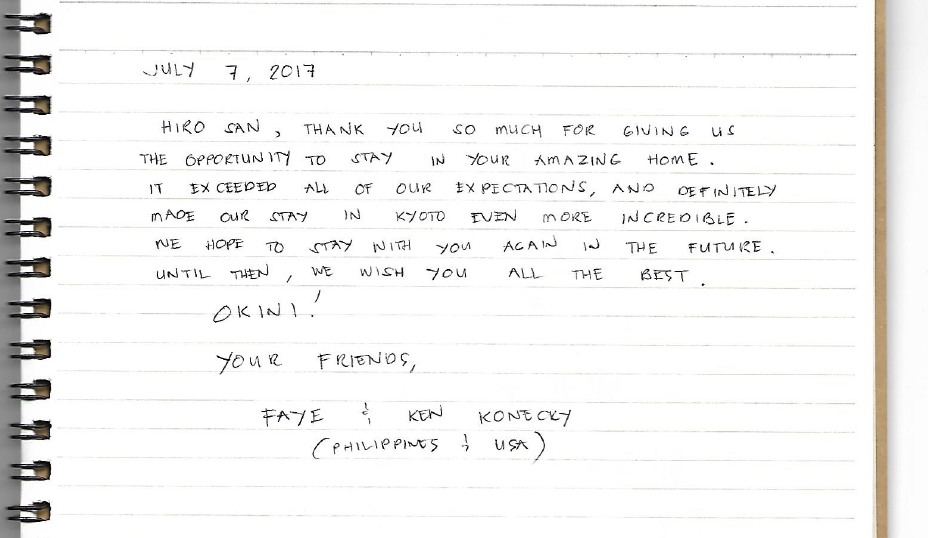 JULY 7, 2017
HIRO SAN, THANK YOU SO MUCH FOR GIVING US
THE OPPORTUNITY TO STAY IN YOUR AMAZING HOME.
IT EXCEEDED ALL OF OUR EXPECTATIONS, AND DEFINITELY
MADE OUR STAY IN KYOTO EVEN MORE INCREDIBLE.
WE HOPE TO STAY WITH YOU AGAIN IN THE FUTURE.
UNTIL THEN, WE WISH YOU ALL THE BEST.
OKINI!
YOUR FRIENDS,
FAYE & KEN KONECKY
(PHILIPPINES & USA)